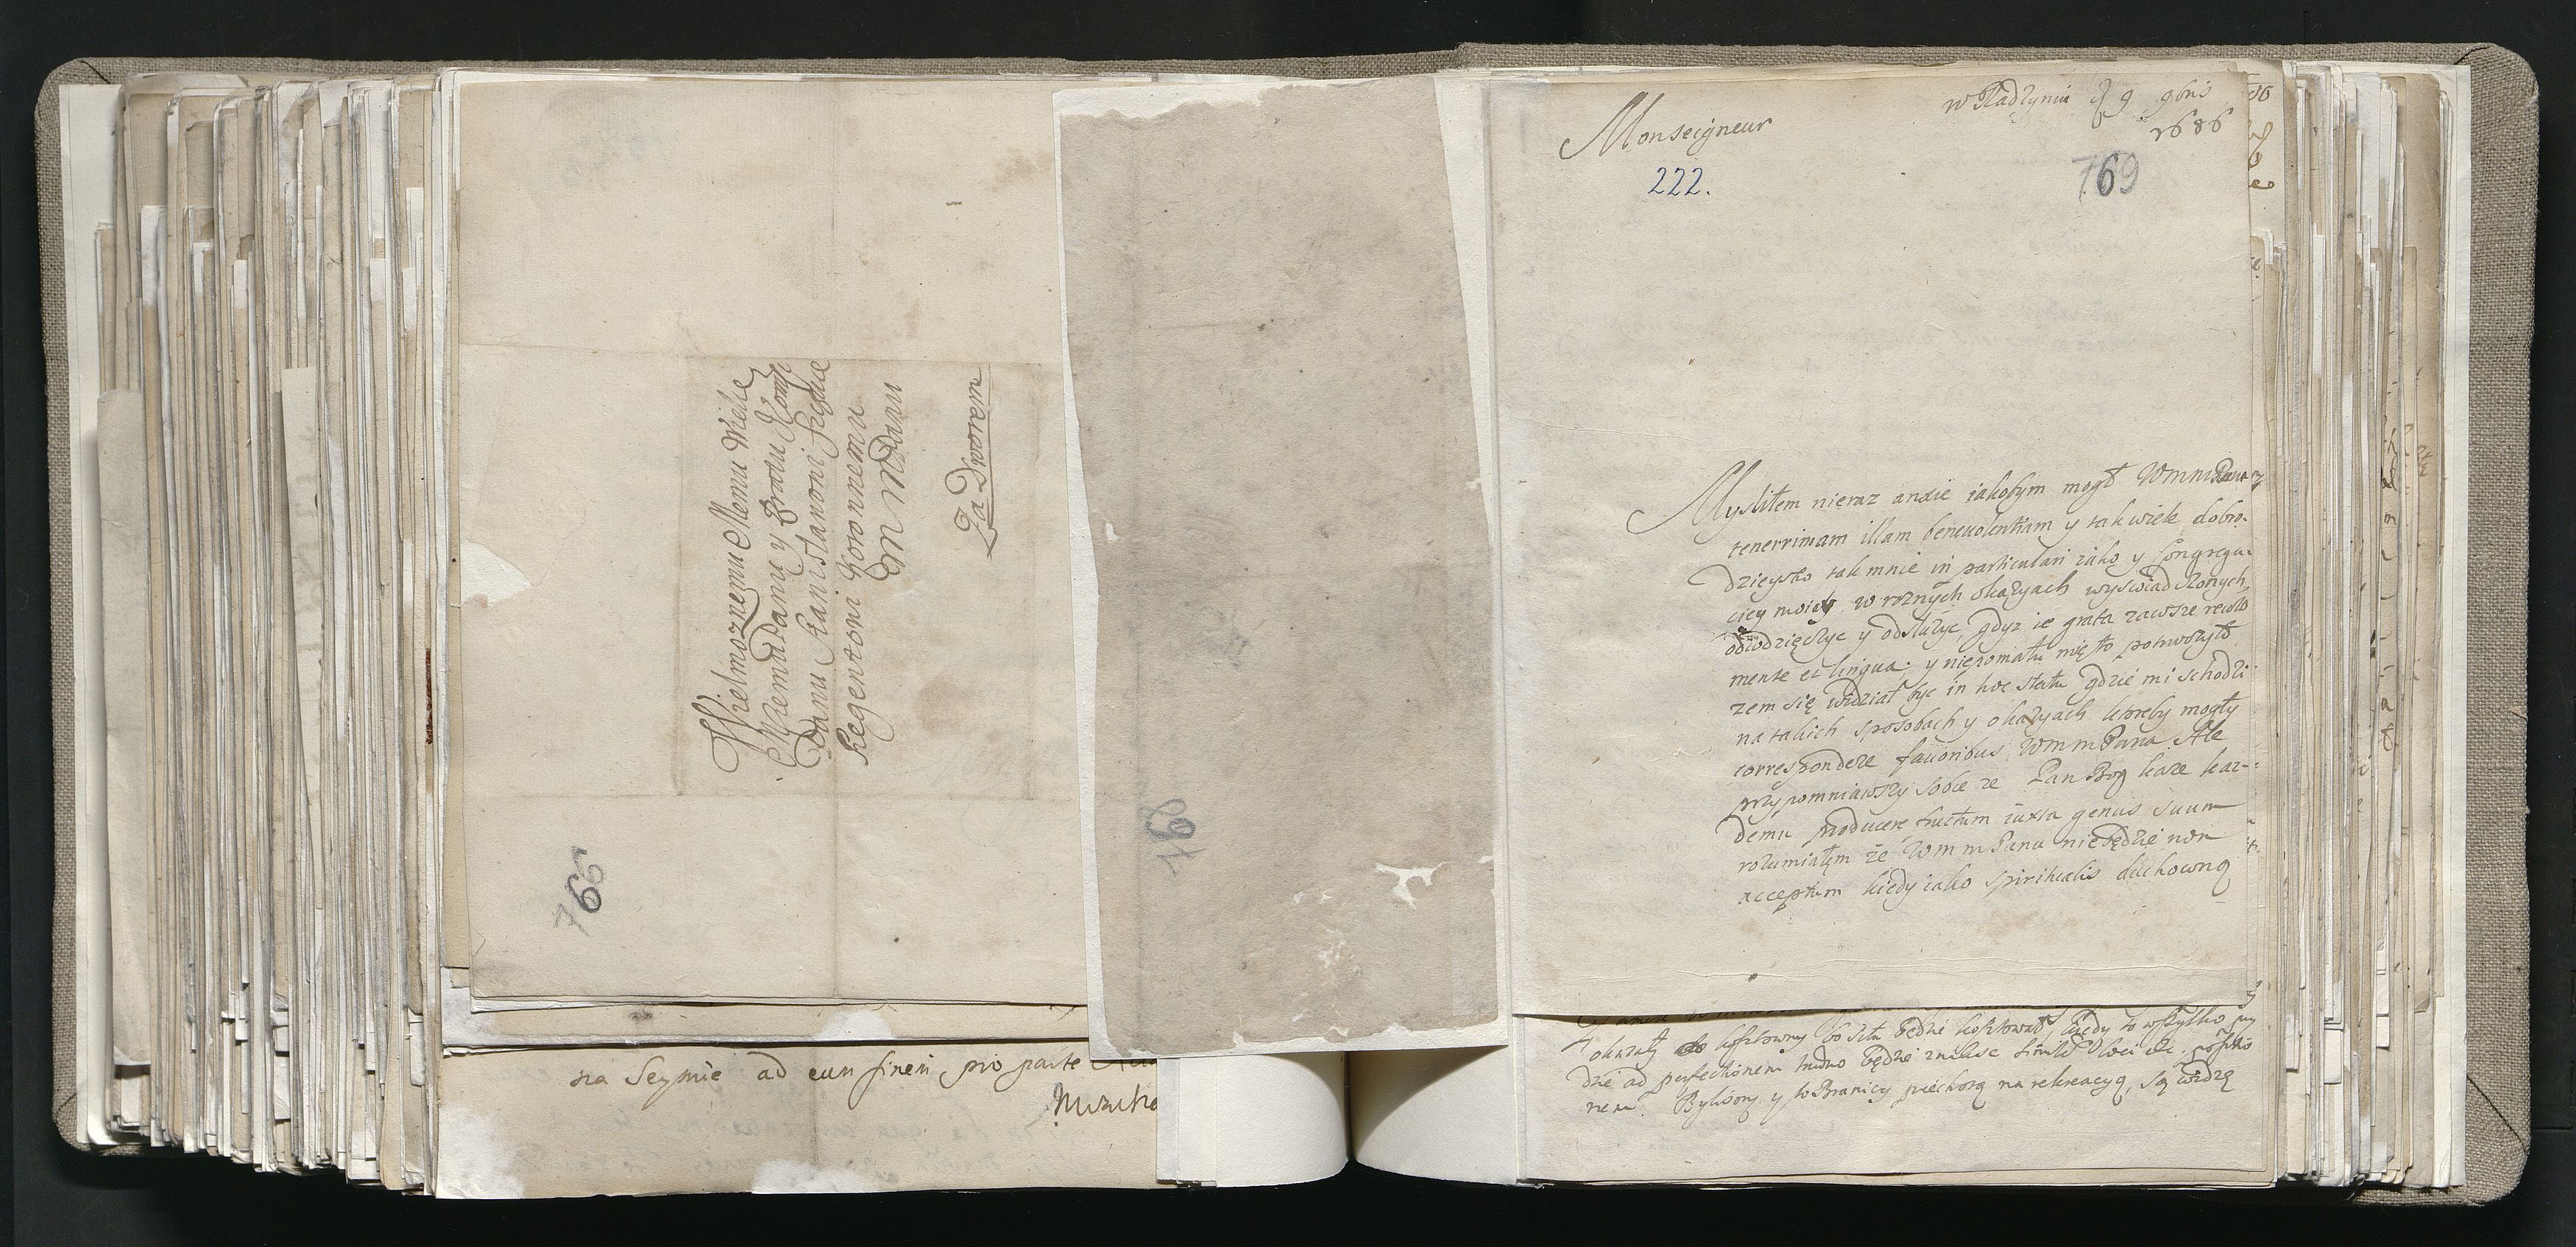 Wielmoznemu Memu Wielce
Mемu Panu y Bratu Jomsi
Panu Stanislawoni Szczuce
Regentowi Koronnemu
M M Panu
Za Dworem
766
na Seymie ad eum finem pro parte
768
w Radzyniu d 9 9bris
1686
Monseigneur
222.
769
Mysliłem nieraz anxie iakobym mogł WmmPana
tenerrimam illam beneuolentiam y tak wiele dobro-
dzieystw tak mnie in particulari iako y Congrega-
ciey moiey w roznych okazyach wyswiadczonych
odwdzięczyc y odsłuzyc, gdyz ie grata zawsze rewolo
mente et lingua; y niepomału mię to potrwozyło
zem się widział byc in hoc statu gdzie mi schodzi
na takich sposobach y okazyach ktoreby mogły
correspondere fauoribus WmmPana. Ale
przypomniawszy sobie ze Pan Bog kaze kaz-
demu producere fructum iuxta genus suum
rozumiałem że WmmPanu niebędzie non
acceptum kiedy iako spiritualis duchowną
okazały kosztowny bo siła będzie kosztował, kiedy to wszytko przy
dzie ad perfectionem trudno będzie znalesc simile
nem. Bylismy y w Branicy piechotą na rekreacyą, są widzę